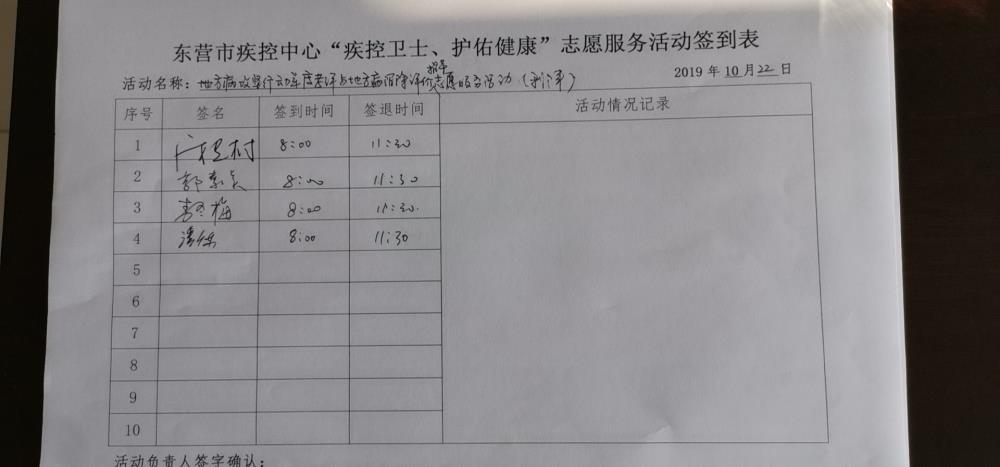 东营市疾控中心“疾控卫士、护佑健康”志愿服务活动签到表
活动名称：地方病攻坚行动年度考评与地方病消除评价志愿服务活动（利津）
2019 年 10 月 22 日
序号 签名 签到时间 签退时间 活动情况记录
1 8:00 11:30
2 8:00 11:30
3 8:00 11:30
4 8:00 11:30
5
6
7
8
9
10
活动负责人签字确认：